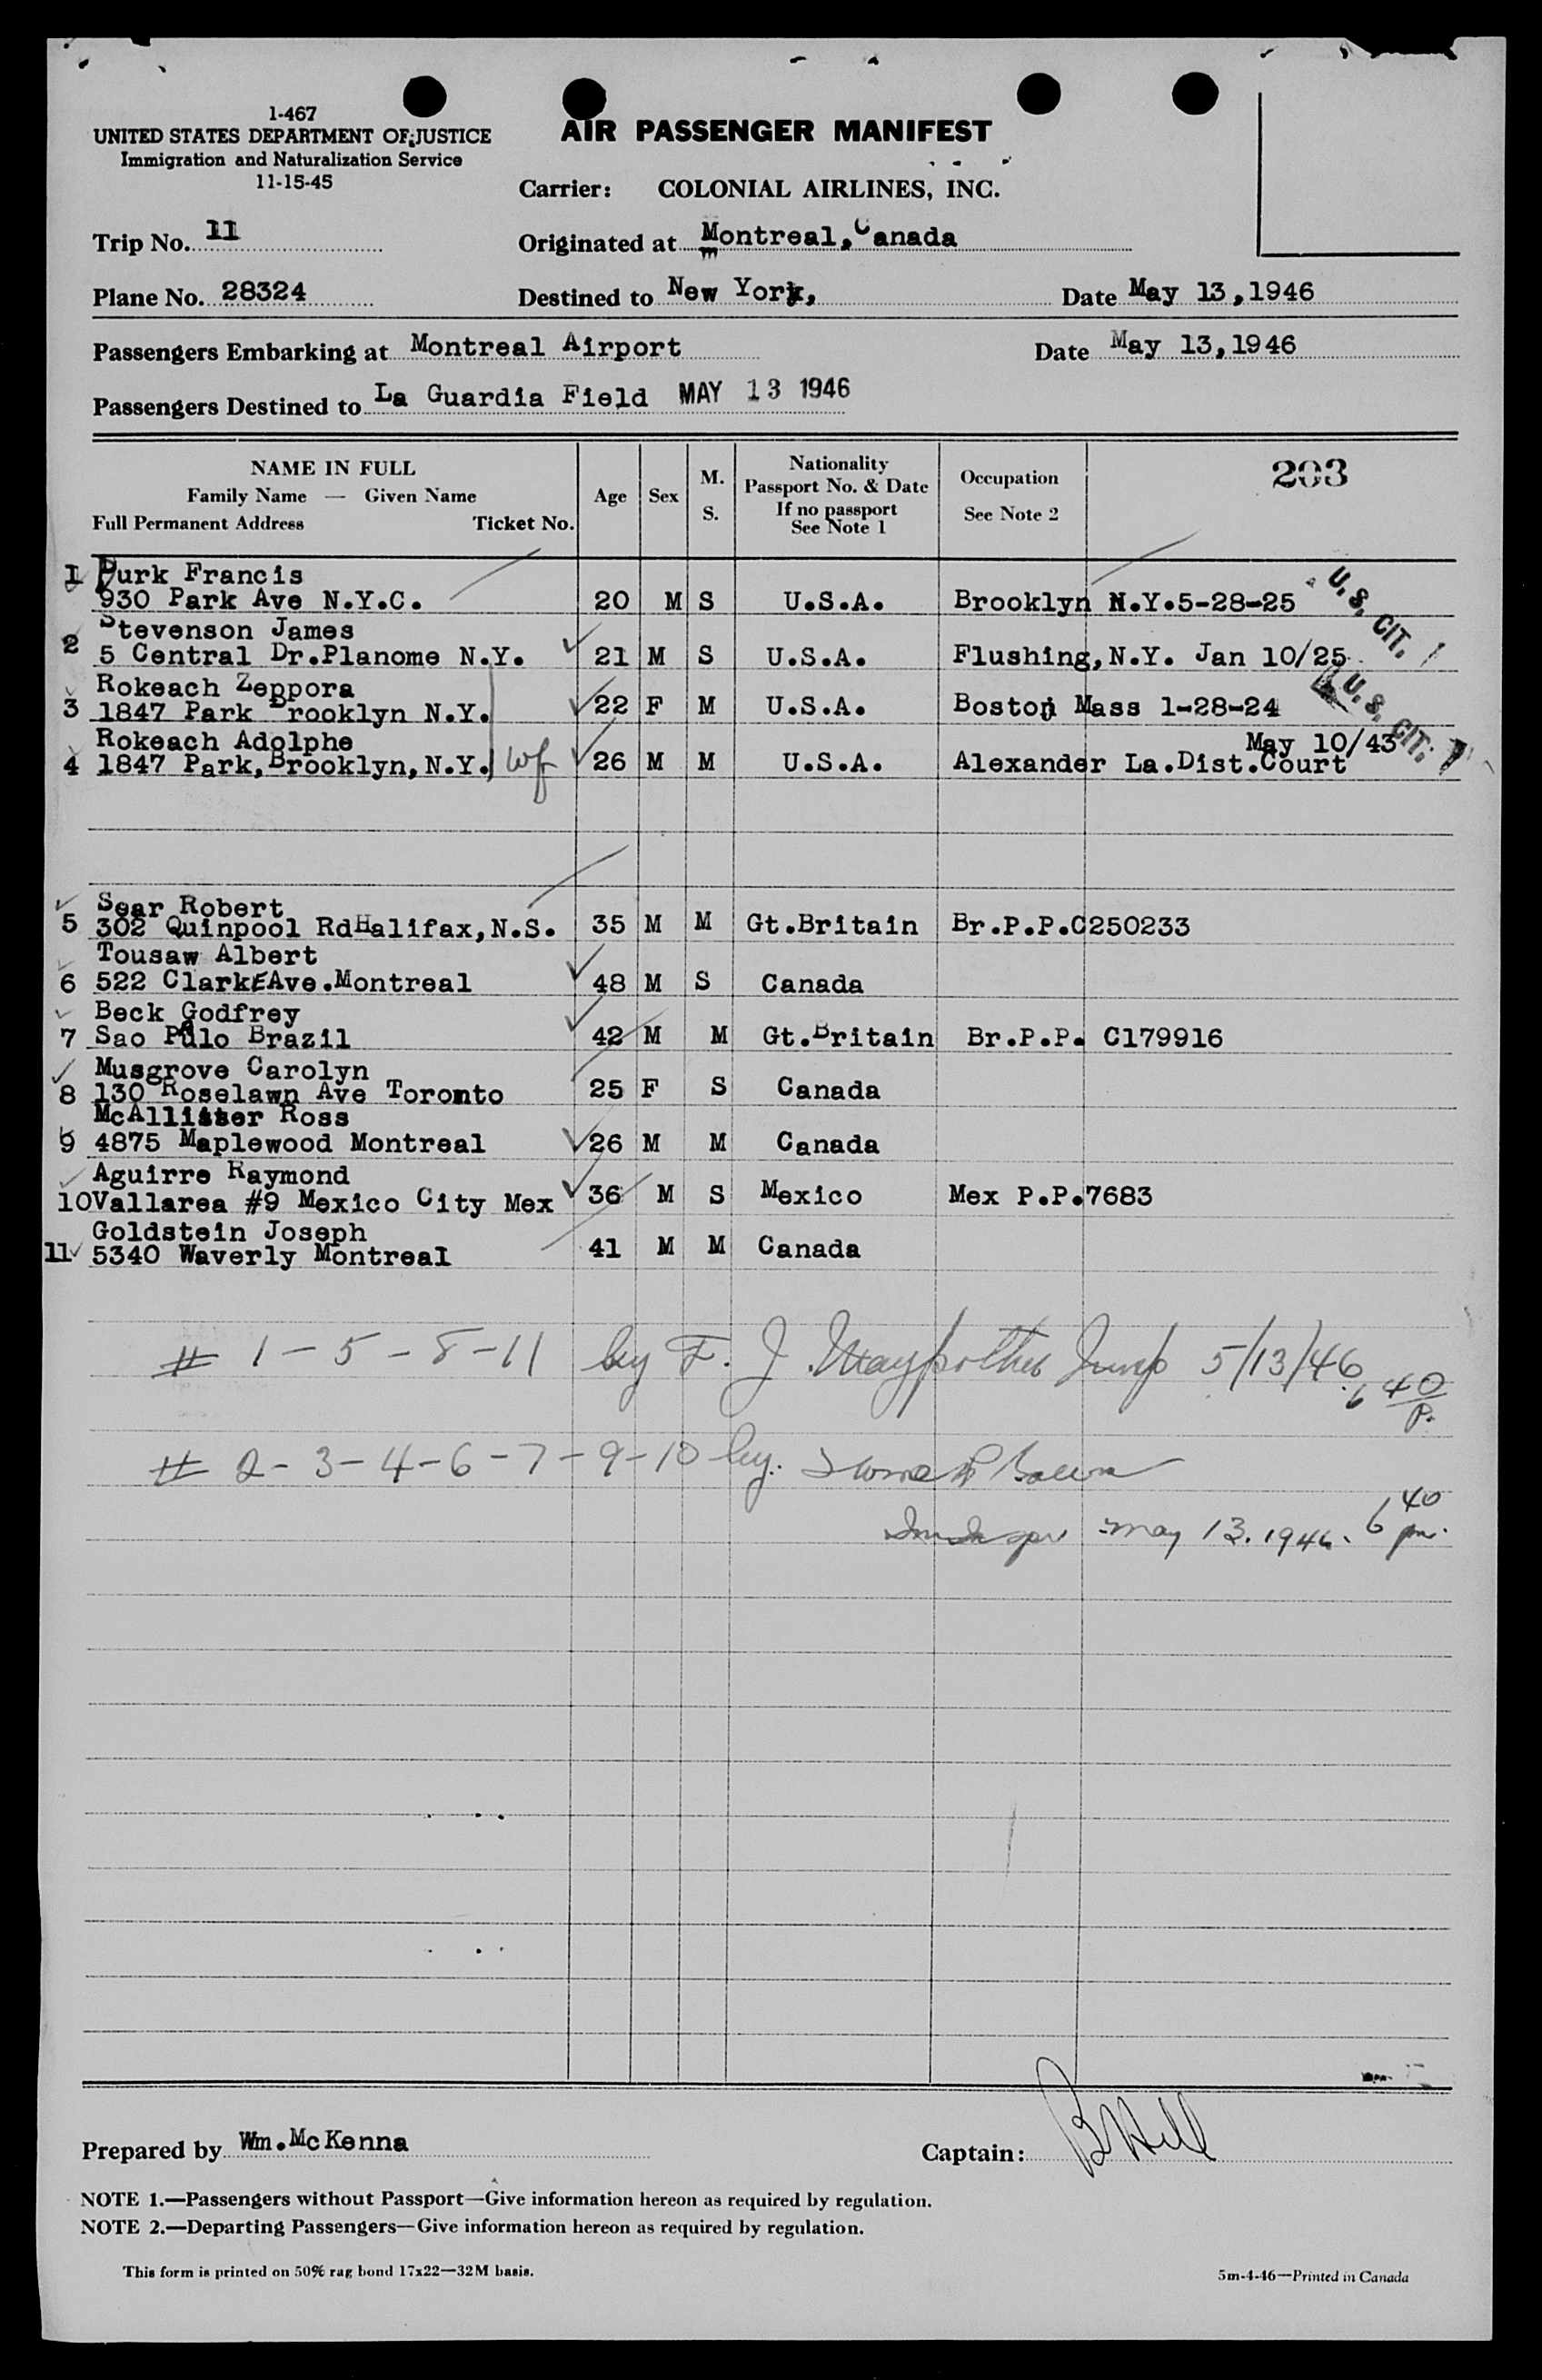 1-467
UNITED STATES DEPARTMENT OF JUSTICE
Immigration and Naturalization Service
11-15-45
AIR PASSENGER MANIFEST
Carrier: COLONIAL AIRLINES, INC.
Trip No. 11
Originated at Montreal, Canada
Plane No. 28324
Destined to New York,
Date May 13, 1946
Passengers Embarking at Montreal Airport
Date May 13, 1946
Passengers Destined to La Guardia Field MAY 13 1946
NAME IN FULL
Family Name — Given Name
Full Permanent Address Ticket No.
Age
Sex
M.
S.
Nationality
Passport No. & Date
If no passport
See Note 1
Occupation
See Note 2
203
1 Purk Francis
930 Park Ave N.Y.C. 20 M S U.S.A. Brooklyn N.Y. 5-28-25
U.S. CIT.
2 Stevenson James
5 Central Dr. Planome N.Y. 21 M S U.S.A. Flushing, N.Y. Jan 10/25
Rokeach Zeppora
3 1847 Park Brooklyn N.Y. 22 F M U.S.A. Boston Mass 1-28-24
U.S. CIT.
Rokeach Adolphe May 10/43
4 1847 Park, Brooklyn, N.Y. wf 26 M M U.S.A. Alexander La. Dist. Court
Sear Robert
5 302 Quinpool Rd Halifax, N.S. 35 M M Gt. Britain Br. P.P. C250233
Tousaw Albert
6 522 ClarkE Ave. Montreal 48 M S Canada
Beck Godfrey
7 Sao Pulo Brazil 42 M M Gt. Britain Br. P.P. C179916
Musgrove Carolyn
8 130 Roselawn Ave Toronto 25 F S Canada
McAllister Ross
9 4875 Maplewood Montreal 26 M M Canada
Aguirre Raymond
10 Vallarea #9 Mexico City Mex 36 M S Mexico Mex P.P. 7683
Goldstein Joseph
11 5340 Waverly Montreal 41 M M Canada
# 1 - 5 - 8 - 11 by F. J. 5/13/46 6 40 P.
# 2 - 3 - 4 - 6 - 7 - 9 - 10 by.
May 13. 1946. 6 40 pm.
Prepared by Wm. McKenna
Captain: B Hill
NOTE 1.—Passengers without Passport—Give information hereon as required by regulation.
NOTE 2.—Departing Passengers—Give information hereon as required by regulation.
This form is printed on 50% rag bond 17x22—32M basis.
5m-4-46—Printed in Canada